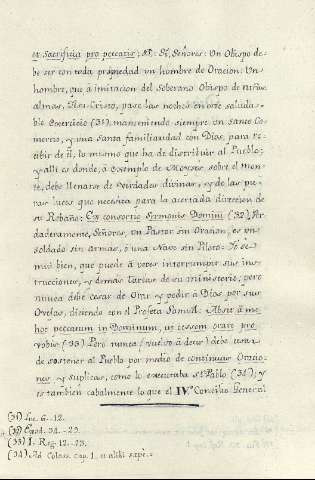 et Sacrificia pro peccatis: Sí, Señores: Un Obispo de-
be ser con toda propiedad un hombre de Oracion: Un
hombre, que á imitacion del Soberano Obispo de ntras
almas, Jesu-Cristo, pase las noches en este saluda-
ble exercicio (31) manteniendo siempre un santo Co-
mercio, y una santa familiaridad con Dios, para re-
cibir de él, lo mismo que ha de distribuir al Pueblo;
y allí es donde, á exemplo de Moyses sobre el mon-
te, debe llenarse de verdades divinas, y de las pu-
ras luces que necesita para la acertada direccion de
su Rebaño: Ex consortio Sermonis Domini (32). Ver-
daderamente, Señores, un Pastor sin Oracion, es un
soldado sin armas, ó una Nave sin Piloto. Yo sé
mui bien, que puede á veces interrumpir sus ins-
trucciones, y demas tareas de su ministerio, pero
nunca debe cesar de Orar y pedir á Dios por sus
Ovejas, diciendo con el Profeta Samuel: Absit á me
hoc peccatum in Dominum, ut cessem orare pro
vobis (33) Pero nunca (vuelvo á decir) debe cesar
de sostener al Pueblo por medio de continuas Oracio-
nes y suplicas, como lo executaba Sn. Pablo (34); y
es tambien cabalmente lo que el IV.º Concilio General
(31) Luc. 6-12.
(32) Exod. 34.-29.
(33) I. Reg. 12.-23.
(34) Ad Coloss. cap. 1. et alibi sæpe.